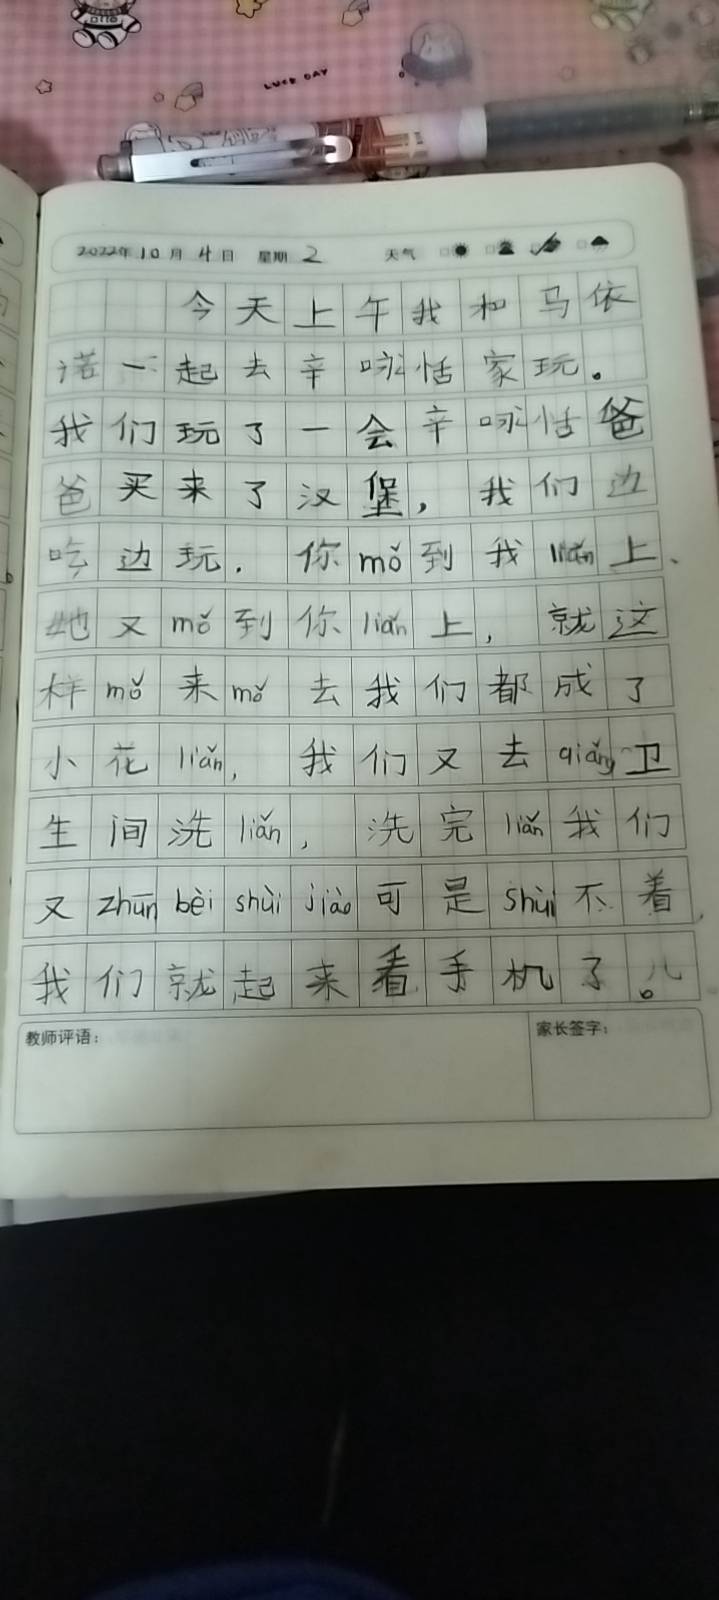 LUCK DAY
2022年10月4日 星期2 天气
今天上午我和马依
诺一起去辛咏恬家玩。
我们玩了一会辛咏恬爸
爸买来了汉堡，我们边
吃边玩．你mǒ到我liǎn上、
她又mǒ到你liǎn上，就这
样mǒ来mǒ去我们都成了
小花liǎn，我们又去qiǎng卫
生间洗liǎn，洗完liǎn我们
又zhūn bèi shùi jiào可是shùi不着，
我们就起来看手机了。
教师评语：
家长签字：